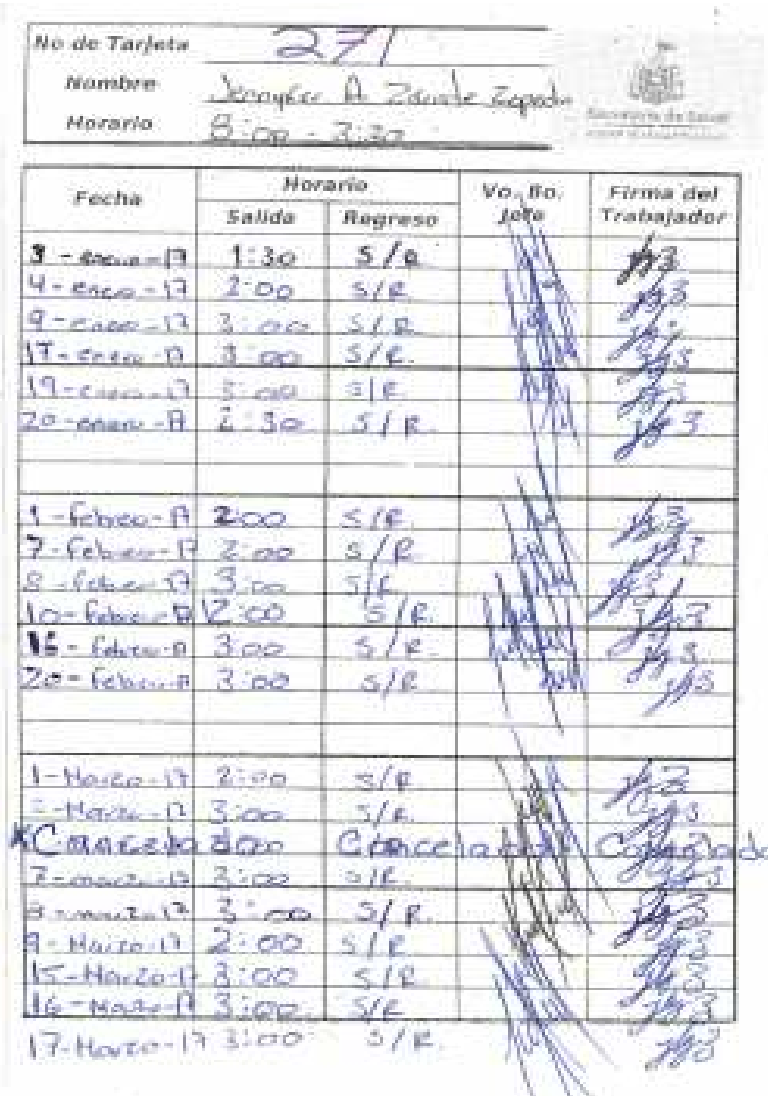 No de Tarjeta 271
Nombre A.
Horario 8:00 - 3:30
Secretaría de Salud
Fecha Horario Vo. Bo. Jefe Firma del Trabajador
Salida Regreso
3 - enero - 17 1:30 S/R
4 - enero - 17 2:00 S/R
9 - enero - 17 3:00 S/R
17 - enero - 17 3:00 S/R
19 - enero - 17 3:00 S/R
20 - enero - 17 2:30 S/R
1 - febreo - 17 2:00 S/R
7 - febreo - 17 2:00 S/R
8 - febreo - 17 3:00 S/R
10 - febreo - 17 12:00 S/R
16 - febreo - 17 3:00 S/R
20 - febreo - 17 3:00 S/R
1 - Marzo - 17 2:00 S/R
Marzo - 17 3:00 S/R
Cancelado Cancelado Cancelado
7 - marzo - 17 3:00 S/R
8 - marzo 17 3:00 S/R
9 - Marzo - 17 2:00 S/R
15 - Marzo - 17 3:00 S/R
16 - Marzo - 17 3:00 S/R
17 - Marzo - 17 3:00 S/R